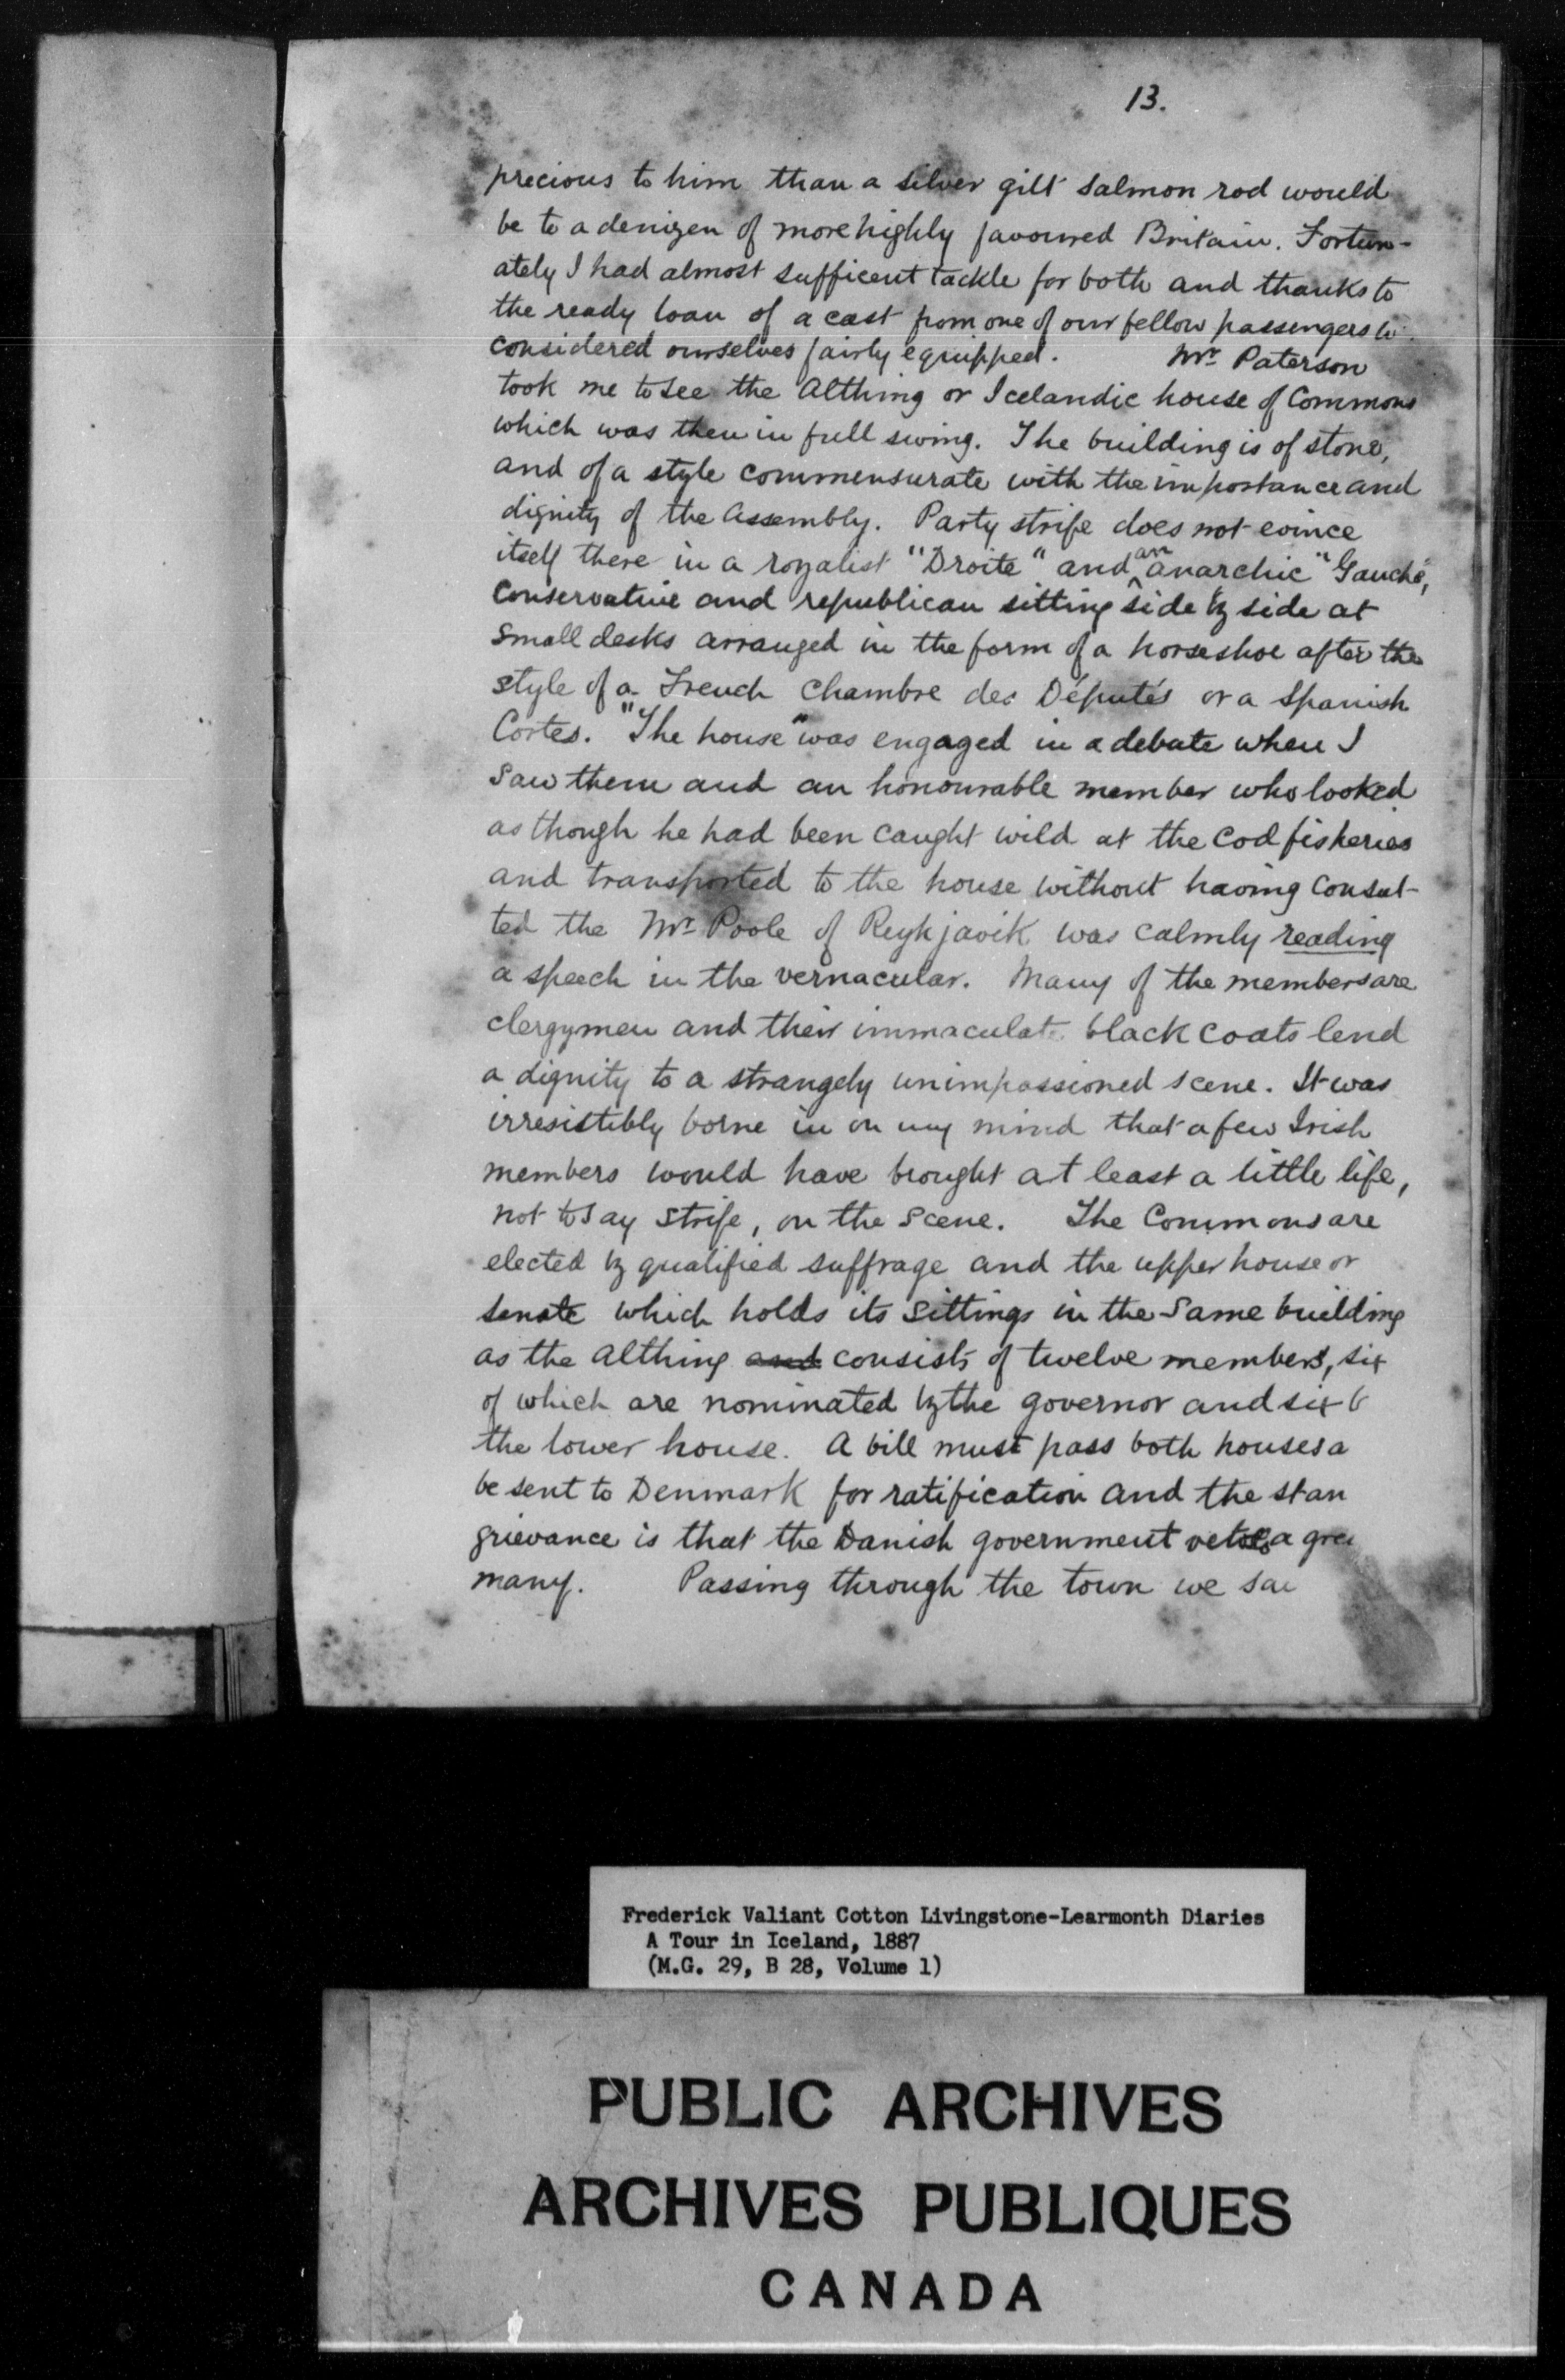 13.
precious to him than a silver gilt salmon rod would
be to a denizen of more highly favoured Britain. Fortun-
ately I had almost sufficent tackle for both and thanks to
the ready loan of a cast from one of our fellow passengers w
considered ourselves fairly equipped. Mr. Paterson
took me to see the Althing or Icelandic house of Commons
which was then in full swing. The building is of stone,
and of a style commensurate with the importance and
dignity of the Assembly. Party strife does not evince
itself there in a royalist "Droite" and an anarchic "Gauche",
Conservative and republican sitting side by side at
small desks arranged in the form of a horseshoe after the
style of a French Chambre des Députés or a Spanish
Cortes. "The house" was engaged in a debate when I
saw them and an honourable member who looked
as though he had been caught wild at the cod fisheries
and transported to the house without having consul-
ted the Mr. Poole of Reykjavik was calmly reading
a speech in the vernacular. Many of the members are
clergymen and their immaculate black coats lend
a dignity to a strangely unimpassioned scene. It was
irresistibly borne in on my mind that a few Irish
members would have brought at least a little life,
not to say strife, on the scene. The Commons are
elected by qualified suffrage and the upper house or
senate which holds its sittings in the same building
as the Althing and consists of twelve members, six
of which are nominated by the governor and six b
the lower house. A bill must pass both houses a
be sent to Denmark for ratification and the stan
grievance is that the Danish government vetoes a grea
many. Passing through the town we sa
Frederick Valiant Cotton Livingstone-Learmonth Diaries
A Tour in Iceland, 1887
(M.G. 29, B 28, Volume 1)
PUBLIC ARCHIVES
ARCHIVES PUBLIQUES
CANADA